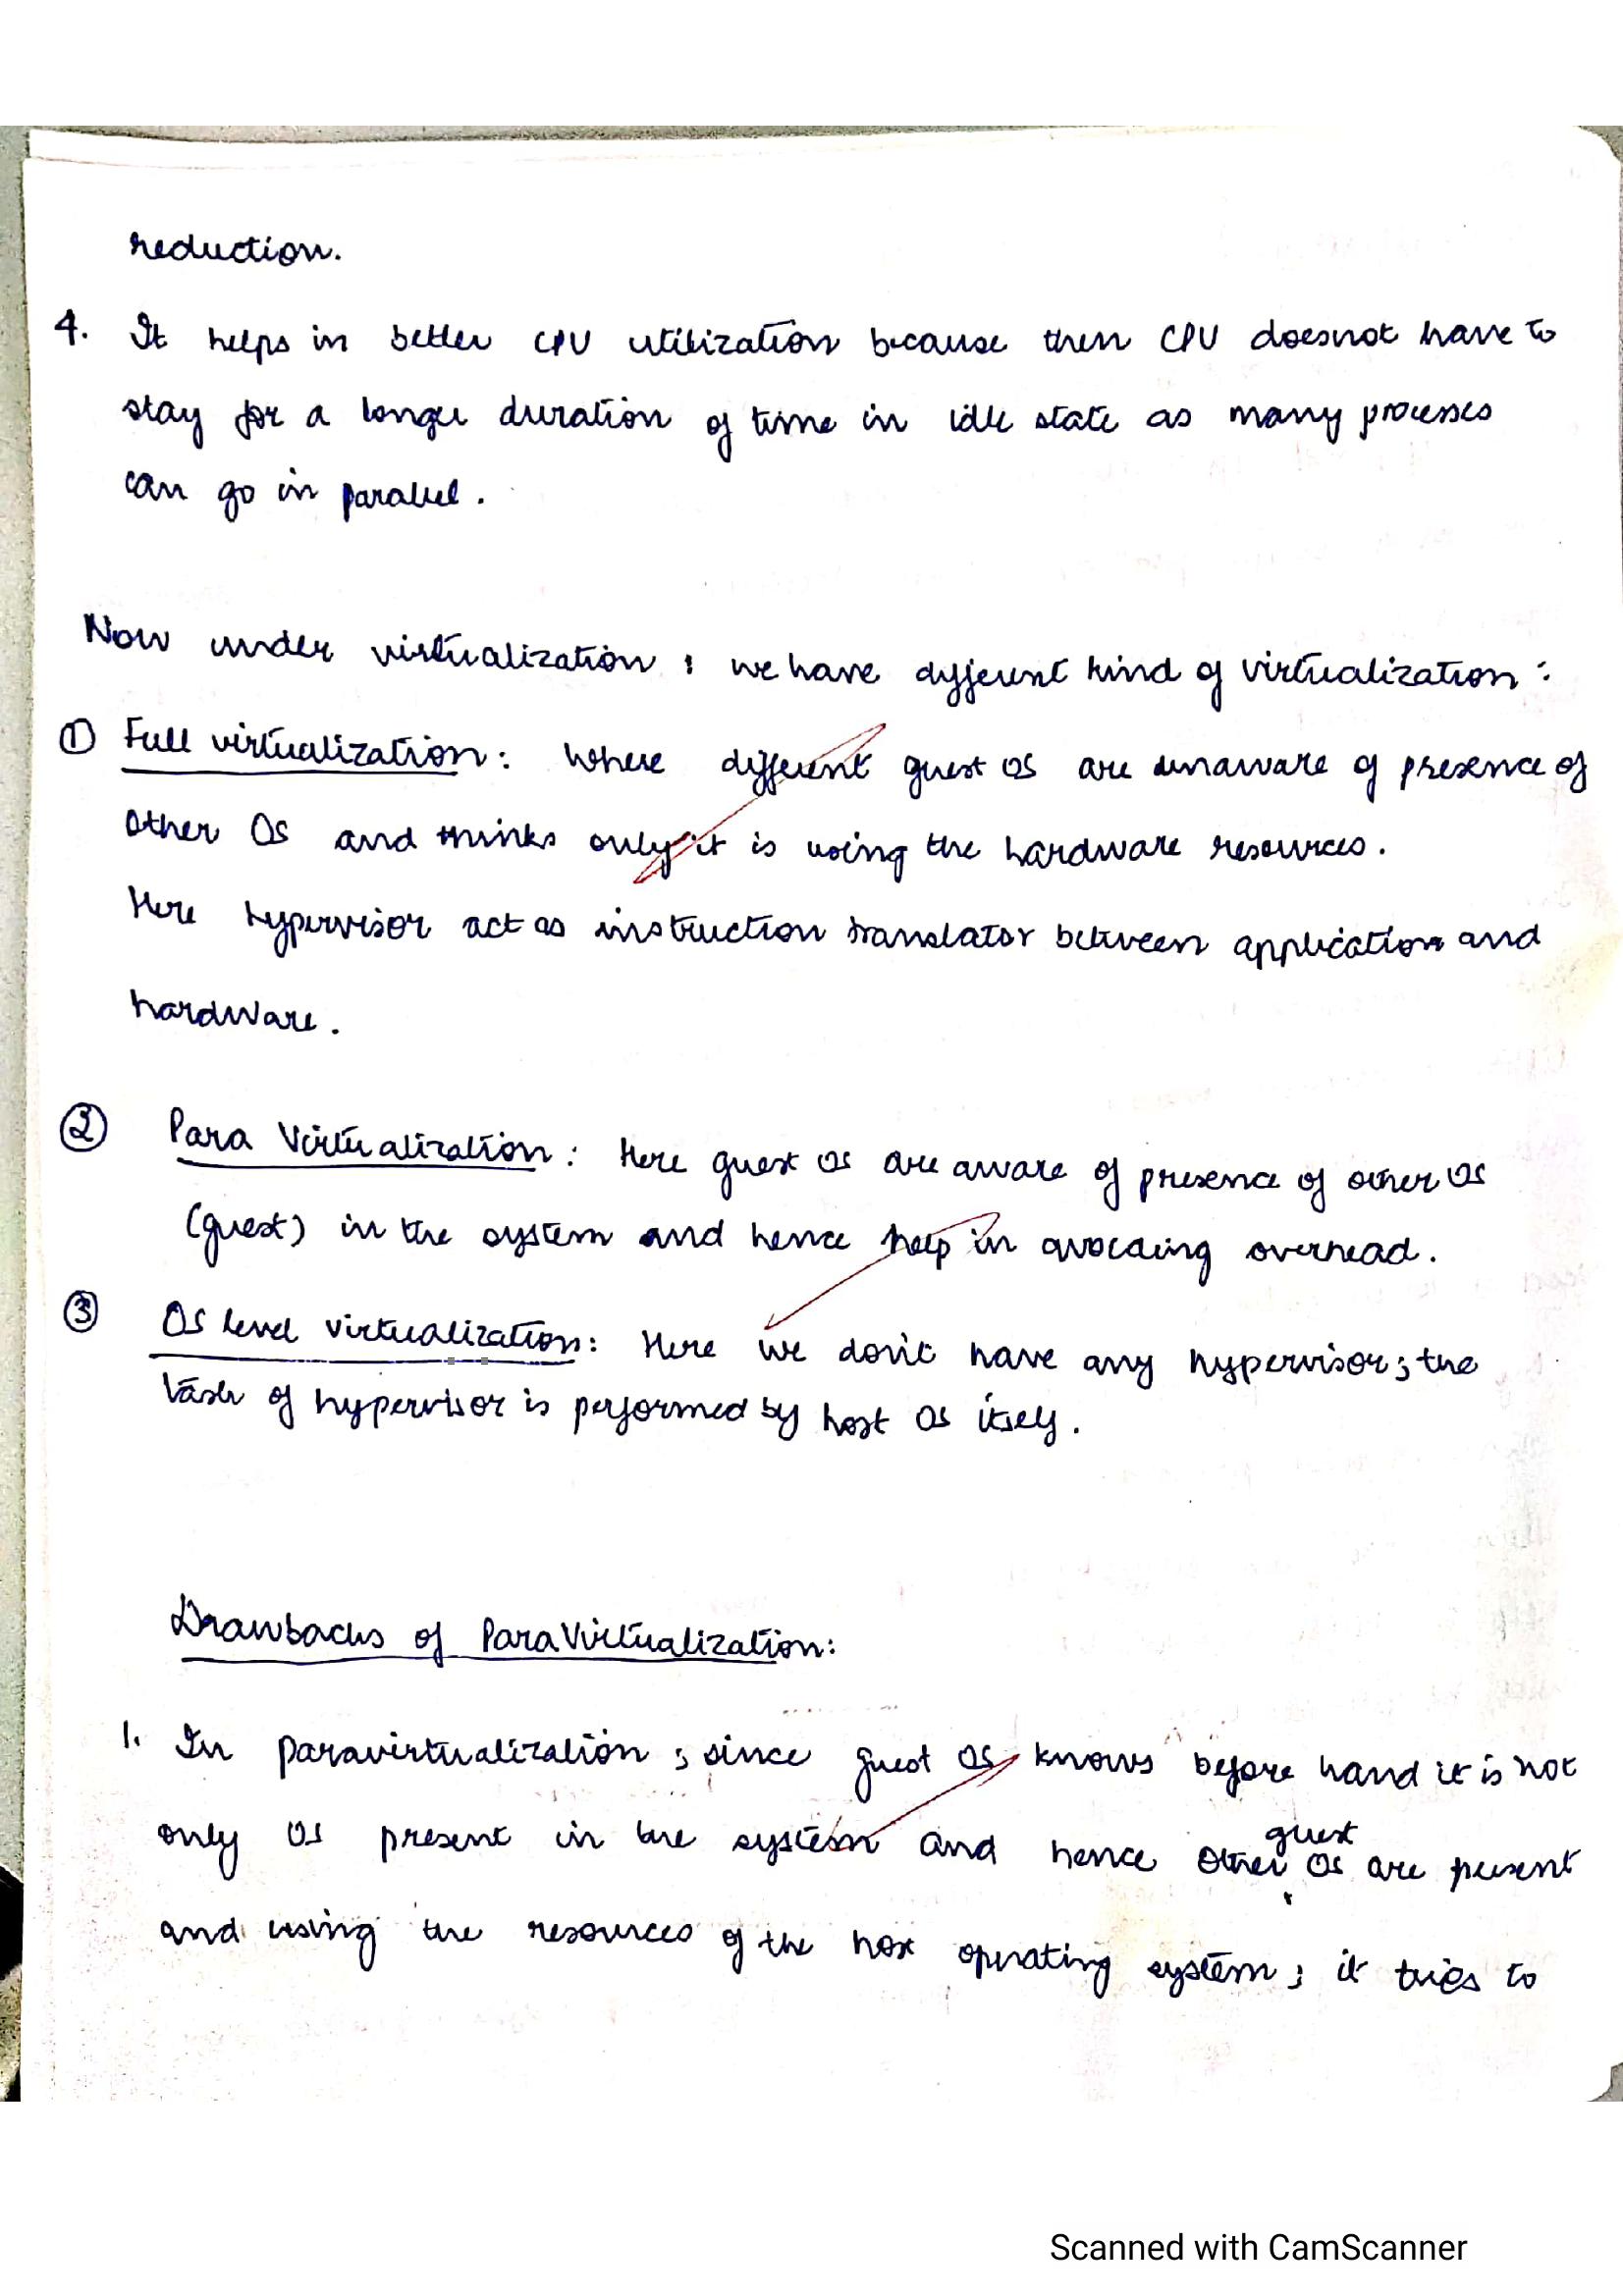 reduction.
4. It helps in better CPU utilization because then CPU doesnot have to
stay for a longer duration of time in idle state as many processes
can go in parallel.
Now under virtualization ; we have different kind of virtualization :
① Full virtualization : Where different guest OS are unaware of presence of
other OS and thinks only it is using the hardware resources.
Here hypervisor act as instruction translator between application and
hardware.
② Para Virtualization : Here guest OS are aware of presence of other OS
(guest) in the system and hence help in avoiding overhead.
③ OS level virtualization: Here we don't have any hypervisor ; the
task of hypervisor is performed by host OS itself.
Drawbacks of ParaVirtualization:
1. In paravirtualization ; since guest OS knows before hand it is not
only OS present in the system and hence other guest OS are present
and using the resources of the host operating system ; it tries to
Scanned with CamScanner